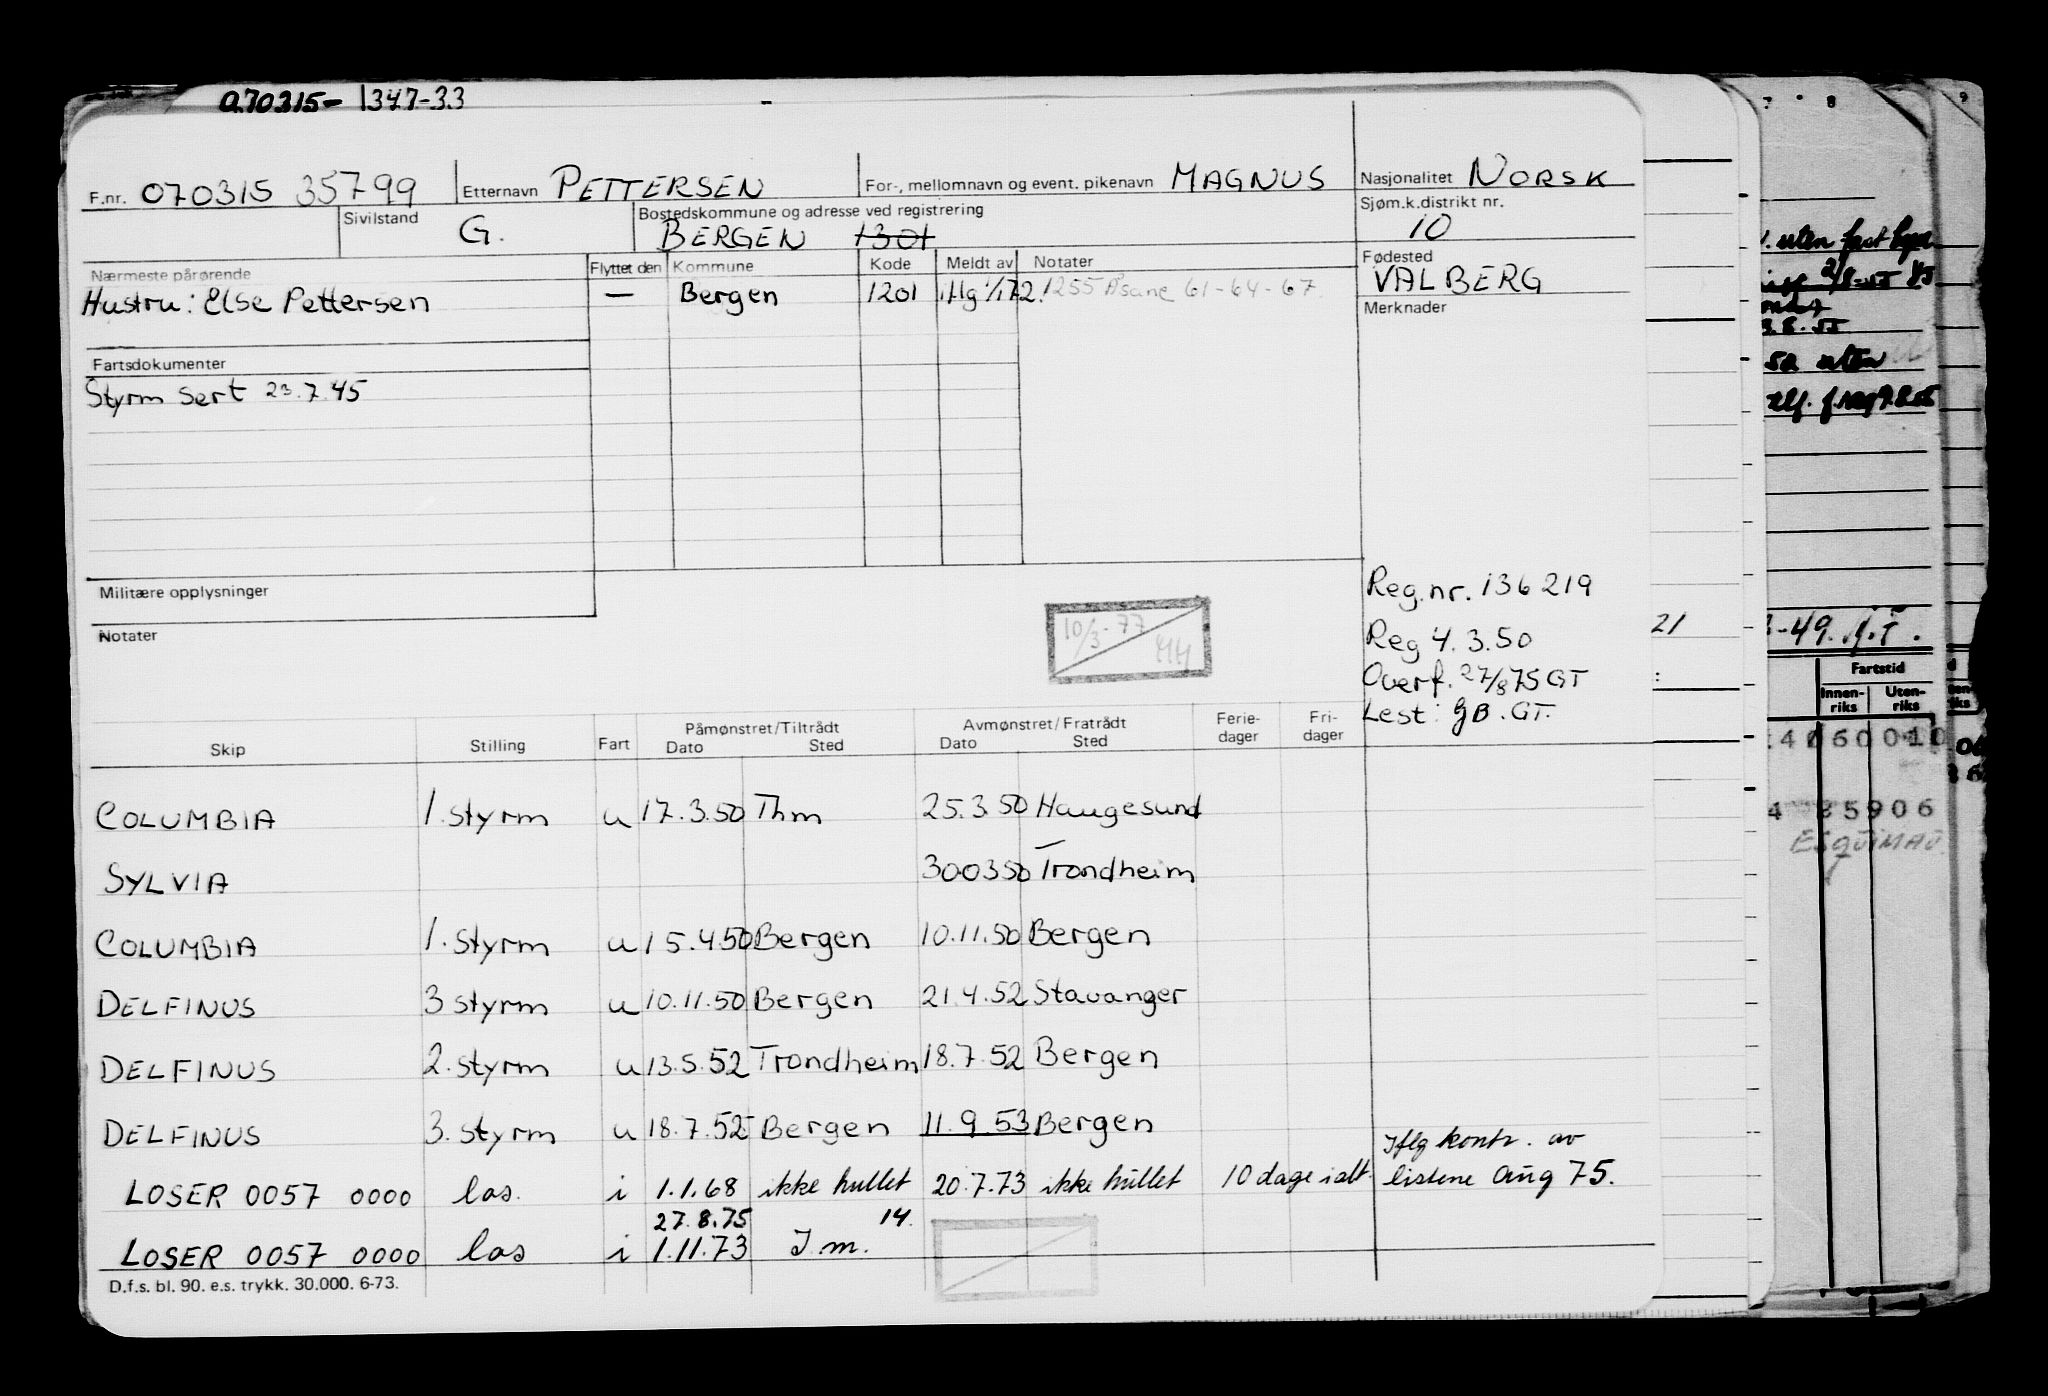 070315- 1347-33
F.nr. 070315 35799 Etternavn PETTERSEN For-, mellomnavn og event. pikenavn MAGNUS Nasjonalitet NORSK
Sivilstand G. Bostedskommune og adresse ved registrering BERGEN 1301 Sjøm.k.distrikt nr. 10
Nærmeste pårørende Flyttet den Kommune Kode Meldt av Notater Fødested VALBERG
Hustru: Else Pettersen — Bergen 1201 1255 Åsane 61-64-67 Merknader
Fartsdokumenter
Styrm Sert 23.7.45
Militære opplysninger
Notater
10/3-77 HH
Reg.nr. 136219
Reg 4.3.50
Overf. 27/8 75 GT
Lest: GB. GT.
Skip Stilling Fart Påmønstret/Tiltrådt Dato Sted Avmønstret/Fratrådt Dato Sted Ferie-dager Fri-dager
COLUMBIA 1. styrm u 17.3.50 Thm 25.3.50 Haugesund
SYLVIA 300350 Trondheim
COLUMBIA 1. styrm u 15.4.50 Bergen 10.11.50 Bergen
DELFINUS 3 styrm u 10.11.50 Bergen 21.4.52 Stavanger
DELFINUS 2. styrm u 13.5.52 Trondheim 18.7.52 Bergen
DELFINUS 3. styrm u 18.7.52 Bergen 11.9.53 Bergen
LOSER 0057 0000 los. i 1.1.68 ikke hullet 20.7.73 ikke hullet 10 dage ialt. Iflg kontr. av listene Aug 75.
27.8.75 14.
LOSER 0057 0000 los i 1.11.73 I.m.
D.f.s. bl. 90. e.s. trykk. 30.000. 6-73.
21
7 8
9
uten fast
50 uten
-49.
Fartstid
Innen-riks Uten-riks
4060010
4 85906
ESQUIMAU